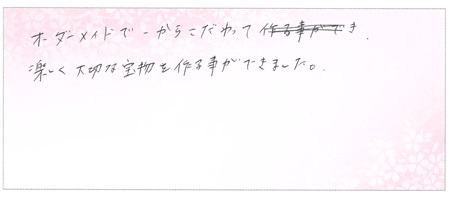 オーダーメイドで一からこだわって作る事ができ、
楽しく大切な宝物を作る事ができました。